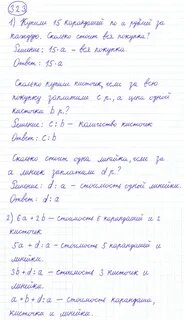 323
1) Купили 15 карандашей по a рублей за
каждую. Сколько стоит вся покупка?
Решение: 15·a - вся покупка.
Ответ: 15·a
Сколько купили кисточек, если за всю
покупку заплатили c р., а цена одной
кисточки b р.?
Решение: c:b - количество кисточек
Ответ: c:b
Сколько стоит одна линейка, если за
a линеек заплатили d р.?
Решение: d:a - стоимость одной линейки.
Ответ: d:a
2) 6a+2b - стоимость 6 карандашей и 2
кисточек
5a+d:a - стоимость 5 карандашей и
линейки.
3b+d:a - стоимость 3 кисточек и
линейки.
a+b+d:a - стоимость карандаша,
кисточки и линейки.